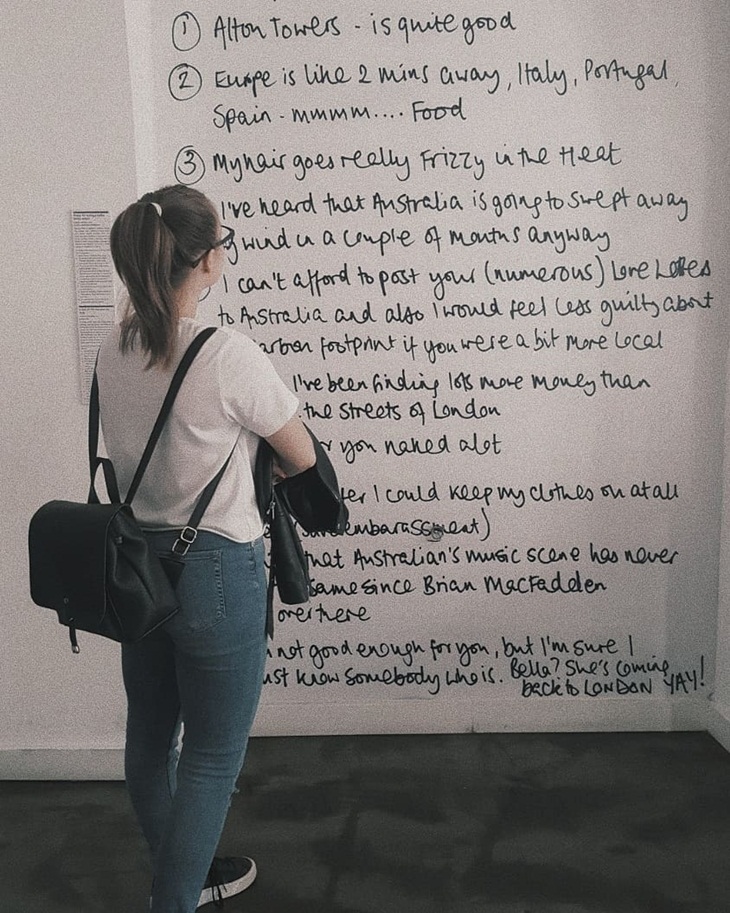 ① Alton Towers - is quite good
② Europe is like 2 mins away, Italy, Portugal,
Spain - mmmm.... Food
③ My hair goes really Frizzy in the Heat
I've heard that Australia is going to swept away
wind in a couple of months anyway
I can't afford to post your (numerous) Love Letters
to Australia and also I would feel less guilty about
footprint if you were a bit more local
I've been finding lots more money than
the streets of London
you naked alot
I could keep my clothes on at all
embarassment)
that Australian's music scene has never
same since Brian MacFadden
over there
not good enough for you, but I'm sure I
know somebody who is. Bella? She's coming
back to LONDON YAY!